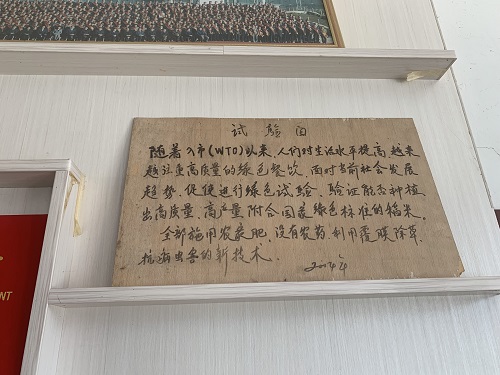 试验田
随着入市(WTO)以来,人们对生活水平提高,越来
越注重高质量的绿色餐饮,面对当前社会发展
趋势,促使进行绿色试验,验证能否种植
出高质量,高产量附合国家绿色标准的稻米。
全部施用农家肥,没有农药,利用覆膜除草,
抗病虫害的新技术。
NT